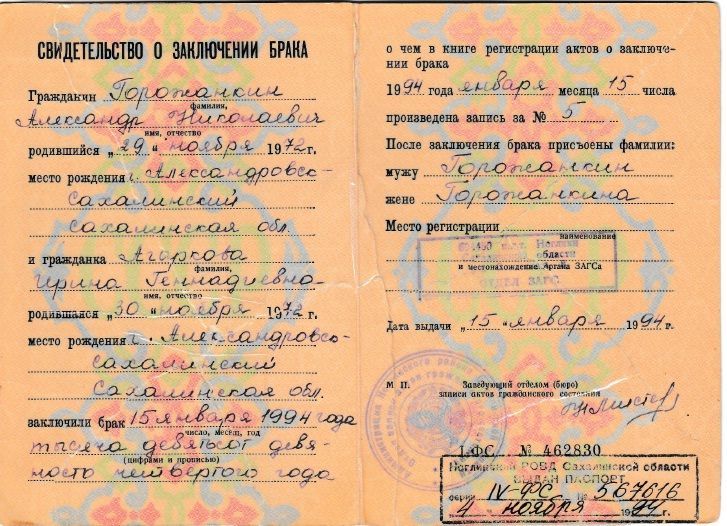 СВИДЕТЕЛЬСТВО О ЗАКЛЮЧЕНИИ БРАКА
Гражданин Горожанкин
фамилия,
Александр Николаевич
имя, отчество
родившийся „29“ ноября 1972 г.
место рождения г. Александровск-
Сахалинский
Сахалинская обл.
и гражданка Агаркова
фамилия,
Ирина Геннадиевна
имя, отчество
родившаяся „30“ ноября 1972 г.
место рождения г. Александровск-
Сахалинский
Сахалинская обл.
заключили брак 15 января 1994 года
число, месяц, год
тысяча девятьсот девя-
(цифрами и прописью)
носто четвертого года
о чем в книге регистрации актов о заключе-
нии брака
1994 года января месяца 15 числа
произведена запись за № 5
После заключения брака присвоены фамилии:
мужу Горожанкин
жене Горожанкина
Место регистрации
наименование
п.г.т. Ноглики
области
и местонахождение органа ЗАГСа
ОТДЕЛ ЗАГС
Дата выдачи „15“ января 1994 г.
М П. Заведующий отделом (бюро)
записи актов гражданского состояния
I-ФС № 462830
Ногликский РОВД Сахалинской области
ВЫДАН ПАСПОРТ
серии IV-ФС № 567616
4 ноября 1994 г.